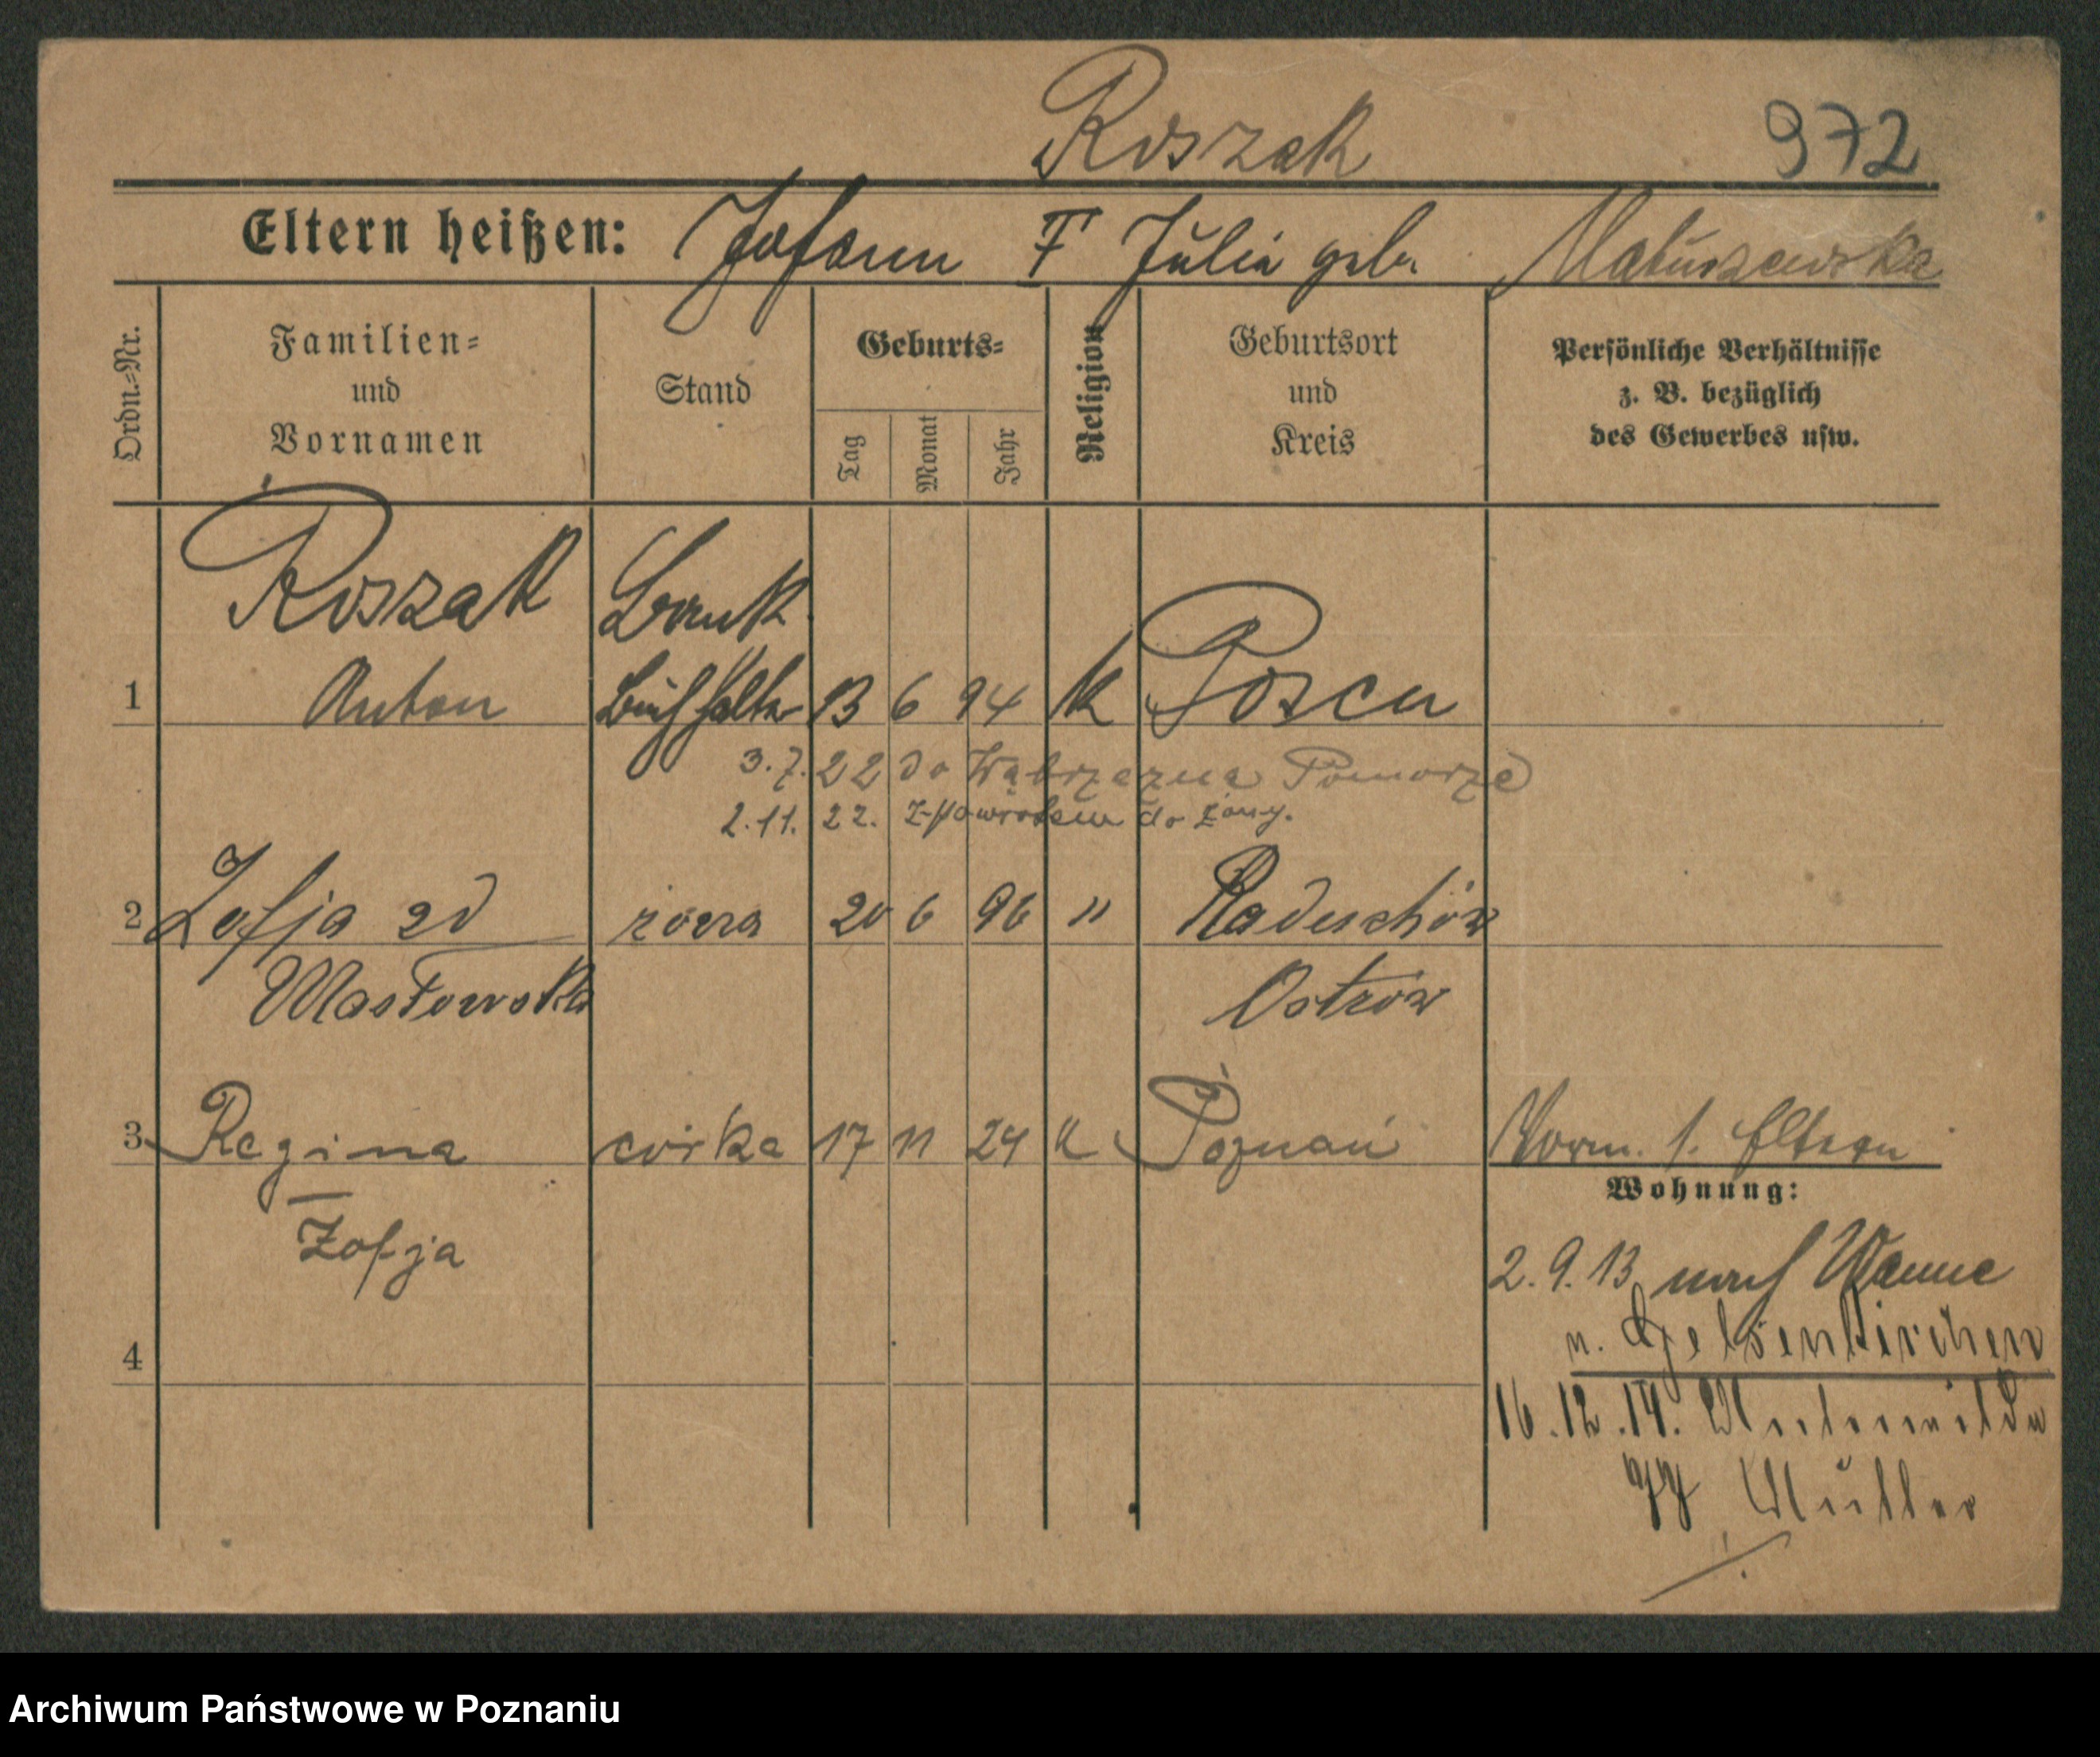 Roszak 972
Eltern heißen: Johann † Julia geb. Matuszewska
Ordn.-Nr.
Familien-
und
Vornamen
Stand
Geburts-
Tag
Monat
Jahr
Religion
Geburtsort
und
Kreis
Persönliche Verhältnisse
z. B. bezüglich
des Gewerbes usw.
Roszak Bank
1 Anton Buchhalter 13 6 94 K Posen
3.7.22 do Wąbrzeźna Pomorze
2.11.22. z powrotem do żony.
2 Zofja zd żona 20 6 96 " Raduchów
Masłowska Ostrów
3 Regina córka 17 11 24 K Poznań Vorm. s. Eltern
Zofja
Wohnung:
2.9.13 nach Wanne
n. Gelsenkirchen
4
16.12.14.
Müller
Archiwum Państwowe w Poznaniu